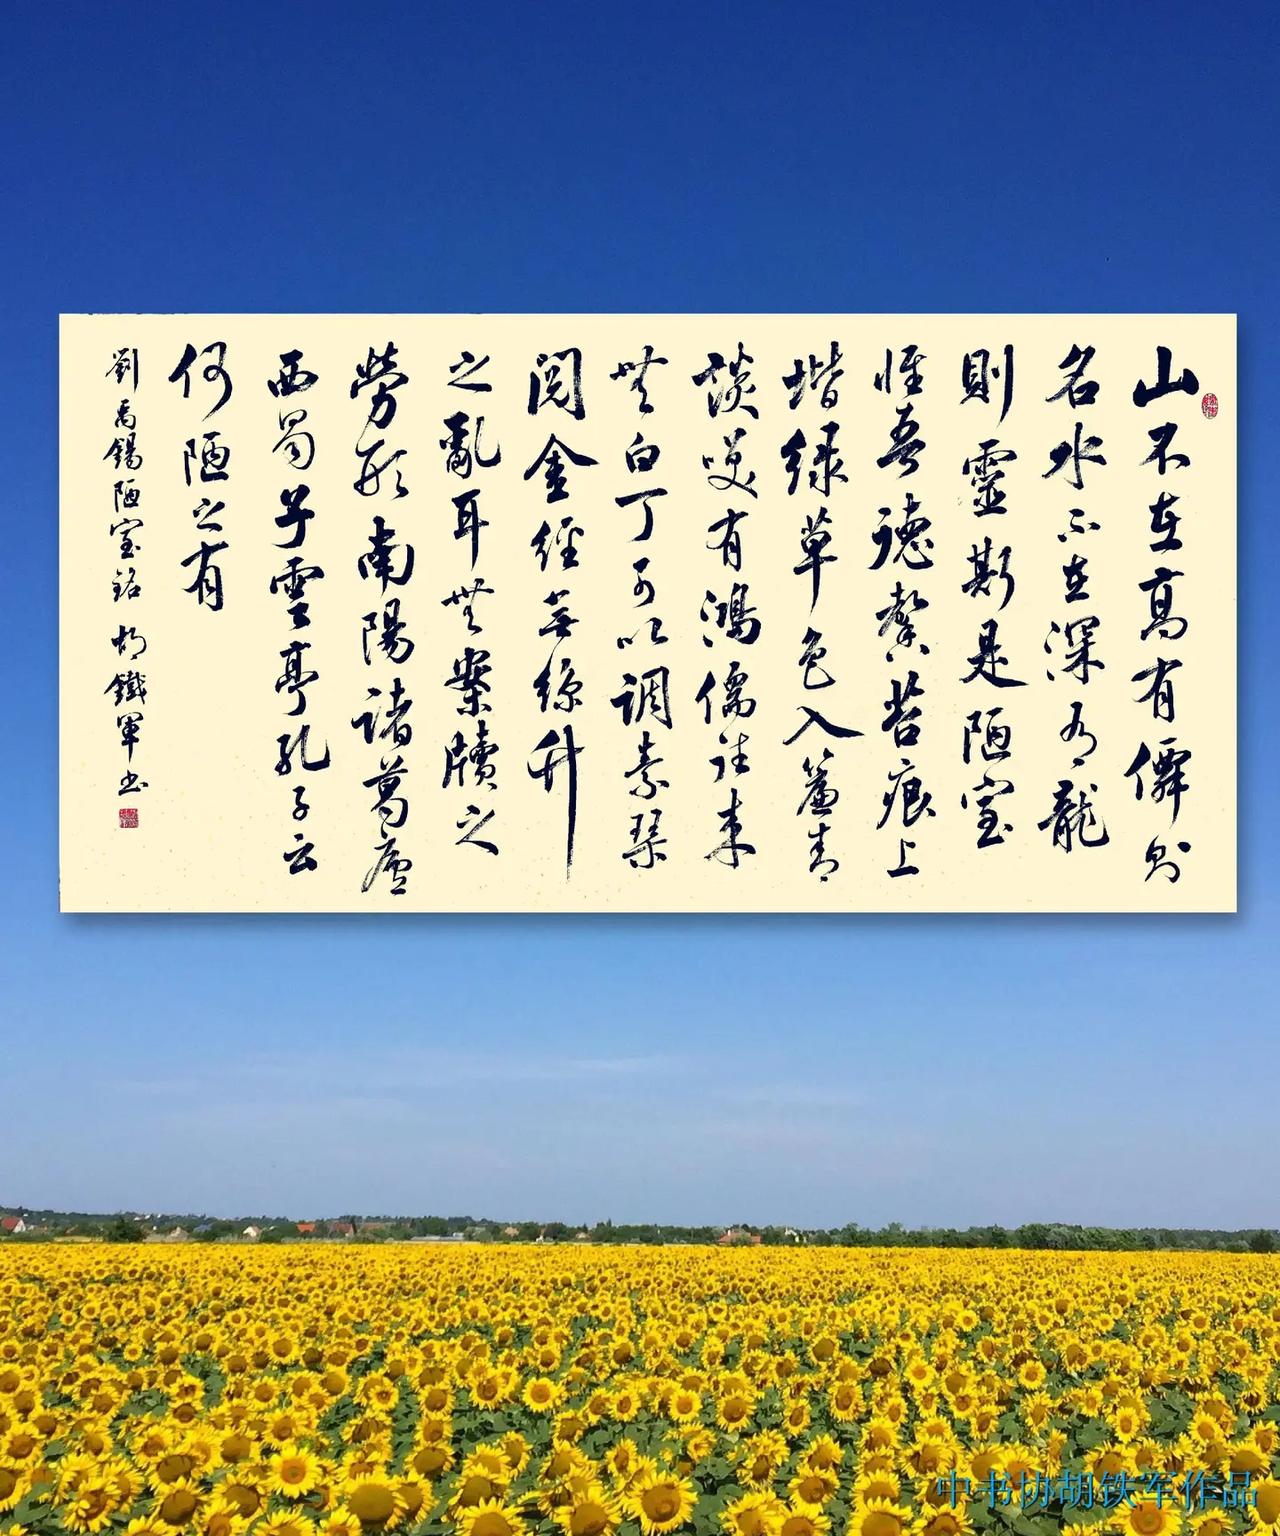 山不在高有僊則
名水不在深有龍
則靈斯是陋室
惟吾德馨苔痕上
堦綠草色入簾青
談笑有鴻儒往来
無白丁可以調素琴
閱金經無絲竹
之亂耳無案牘之
勞形南陽諸葛廬
西蜀子雲亭孔子云
何陋之有
劉禹錫陋室銘 胡鐵軍书
中书协胡铁军作品